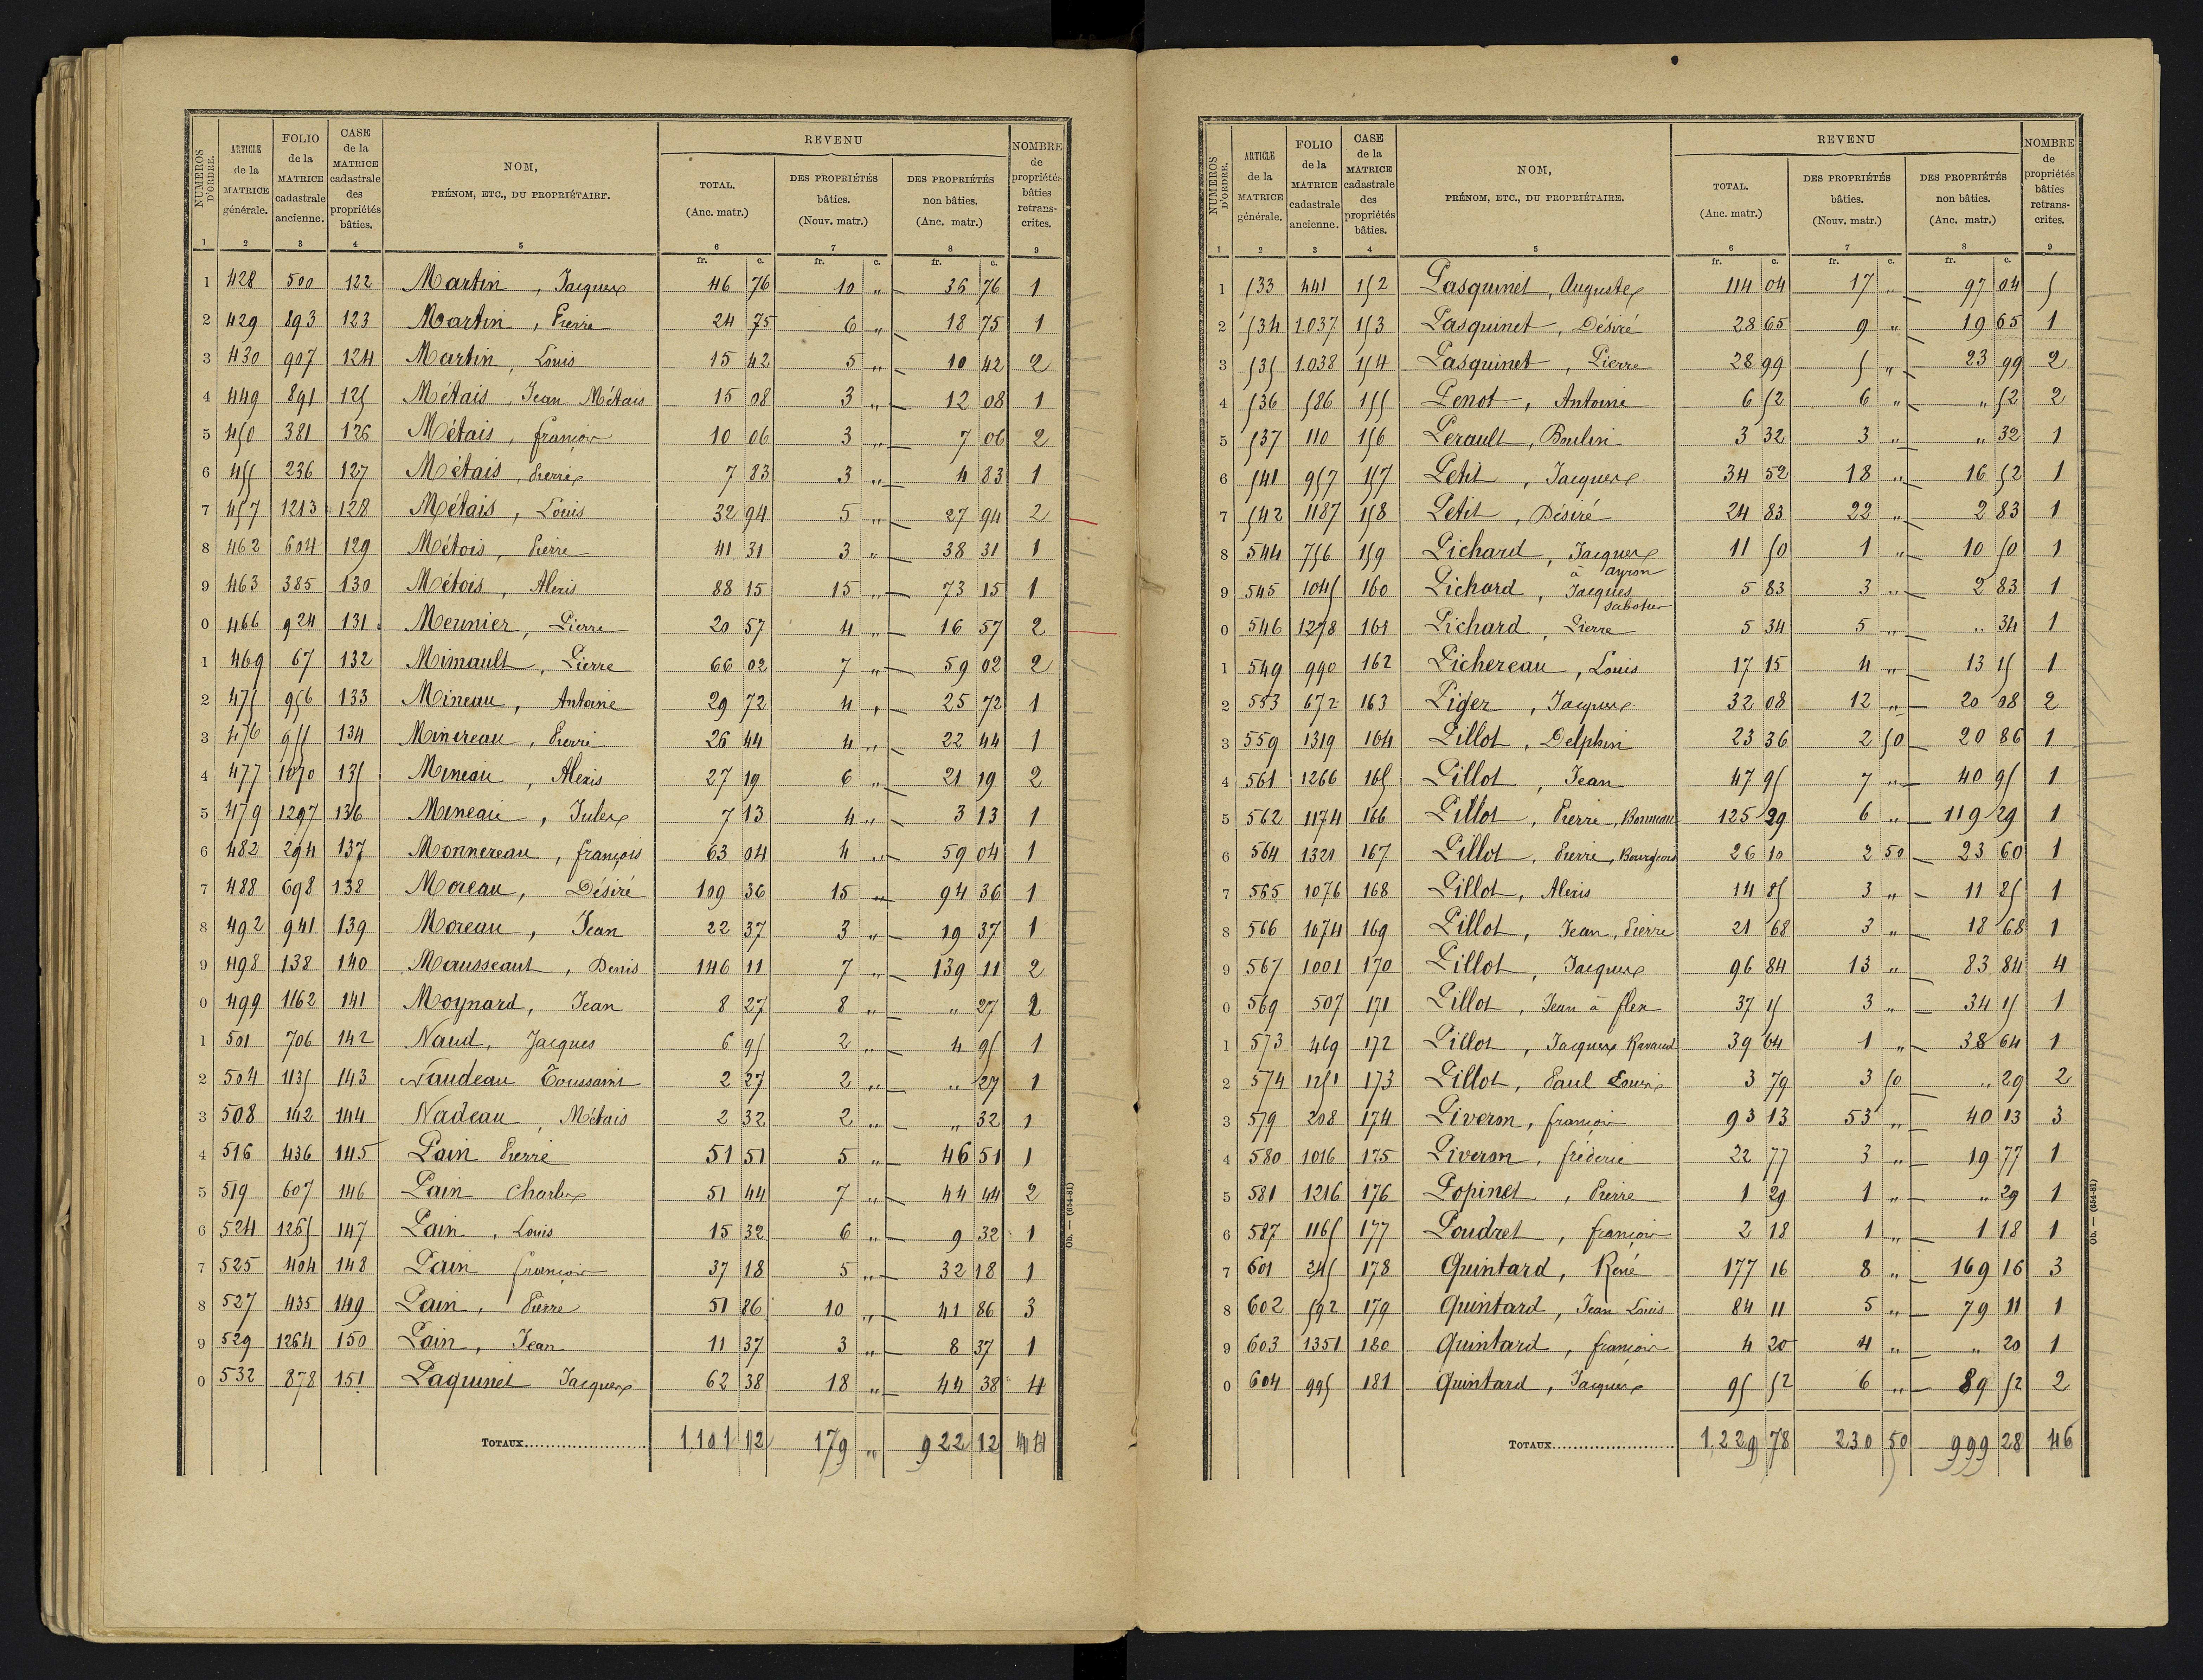 NUMÉROS D'ORDRE. | ARTICLE de la MATRICE générale. | FOLIO de la MATRICE cadastrale ancienne. | CASE de la MATRICE cadastrale des propriétés bâties. | NOM, PRÉNOM, ETC., DU PROPRIÉTAIRE. | REVENU TOTAL. (Anc. matr.) | DES PROPRIÉTÉS bâties. (Nouv. matr.) | DES PROPRIÉTÉS non bâties. (Anc. matr.) | NOMBRE de propriétés bâties retranscrites.
1 2 3 4 5 6 7 8 9
fr. c. fr. c. fr. c.
1 428 500 122 Martin, Jacques 46 76 10 „ 36 76 1
2 429 893 123 Martin, Pierre 24 75 6 „ 18 75 1
3 430 907 124 Martin, Louis 15 42 5 „ 10 42 2
4 449 891 125 Métais, Jean Métais 15 08 3 „ 12 08 1
5 450 381 126 Métais, françois 10 06 3 „ 7 06 2
6 455 236 127 Métais, Pierre 7 83 3 „ 4 83 1
7 457 1213 128 Métais, Louis 32 94 5 „ 27 94 2
8 462 604 129 Métois, Pierre 41 31 3 „ 38 31 1
9 463 385 130 Métois, Alexis 88 15 15 „ 73 15 1
0 466 924 131 Meunier, Pierre 20 57 4 „ 16 57 2
1 469 67 132 Mimault, Pierre 66 02 7 „ 59 02 2
2 475 956 133 Mineau, Antoine 29 72 4 „ 25 72 1
3 476 955 134 Minereau, Pierre 26 44 4 „ 22 44 1
4 477 1070 135 Mineau, Alexis 27 19 6 „ 21 19 2
5 479 1297 136 Mineau, Jules 7 13 4 „ 3 13 1
6 482 294 137 Monnereau, françois 63 04 4 „ 59 04 1
7 488 698 138 Moreau, Désiré 109 36 15 „ 94 36 1
8 492 941 139 Moreau, Jean 22 37 3 „ 19 37 1
9 498 138 140 Mousseaut, Denis 146 11 7 „ 139 11 2
0 499 1162 141 Moynard, Jean 8 27 8 „ „ 27 2
1 501 706 142 Naud, Jacques 6 95 2 „ 4 95 1
2 504 1135 143 Naudeau Toussaint 2 27 2 „ „ 27 1
3 508 142 144 Nadeau, Métais 2 32 2 „ „ 32 1
4 516 436 145 Pain Pierre 51 51 5 „ 46 51 1
5 519 607 146 Pain Charles 51 44 7 „ 44 44 2
6 524 1265 147 Pain, Louis 15 32 6 „ 9 32 1
7 525 404 148 Pain françois 37 18 5 „ 32 18 1
8 527 435 149 Pain, Pierre 51 86 10 „ 41 86 3
9 529 1264 150 Pain, Jean 11 37 3 „ 8 37 1
0 532 878 151 Paquinet Jacques 62 38 18 „ 44 38 4
TOTAUX 1.101 12 179 „ 922 12
Ob. — (654-81)
NUMÉROS D'ORDRE. | ARTICLE de la MATRICE générale. | FOLIO de la MATRICE cadastrale ancienne. | CASE de la MATRICE cadastrale des propriétés bâties. | NOM, PRÉNOM, ETC., DU PROPRIÉTAIRE. | REVENU TOTAL. (Anc. matr.) | DES PROPRIÉTÉS bâties. (Nouv. matr.) | DES PROPRIÉTÉS non bâties. (Anc. matr.) | NOMBRE de propriétés bâties retranscrites.
1 2 3 4 5 6 7 8 9
fr. c. fr. c. fr. c.
1 533 441 152 Pasquinet, Auguste 114 04 17 „ 97 04 5
2 534 1.037 153 Pasquinet, Désiré 28 65 9 „ 19 65 1
3 535 1.038 154 Pasquinet, Pierre 28 99 5 „ 23 99 2
4 536 586 155 Penot, Antoine 6 52 6 „ „ 52 2
5 537 110 156 Perault, Baulin 3 32 3 „ „ 32 1
6 541 957 157 Petit, Jacques 34 52 18 „ 16 52 1
7 542 1187 158 Petit, Désiré 24 83 22 „ 2 83 1
8 544 756 159 Pichard, Jacques à ayron 11 50 1 „ 10 50 1
9 545 1045 160 Pichard, Jacques sabotier 5 83 3 „ 2 83 1
0 546 1278 161 Pichard, Pierre 5 34 5 „ „ 34 1
1 549 990 162 Pichereau, Louis 17 15 4 „ 13 15 1
2 553 672 163 Piger, Jacques 32 08 12 „ 20 08 2
3 559 1319 164 Pillot, Delphin 23 36 2 50 20 86 1
4 561 1266 165 Pillot, Jean 47 95 7 „ 40 95 1
5 562 1174 166 Pillot, Pierre, Bonneau 125 29 6 „ 119 29 1
6 564 1321 167 Pillot, Pierre, Bourgeois 26 10 2 50 23 60 1
7 565 1076 168 Pillot, Alexis 14 85 3 „ 11 85 1
8 566 1074 169 Pillot, Jean, Pierre 21 68 3 „ 18 68 1
9 567 1001 170 Pillot, Jacques 96 84 13 „ 83 84 4
0 569 507 171 Pillot, Jean à flex 37 15 3 „ 34 15 1
1 573 469 172 Pillot, Jacques Ravaud 39 64 1 „ 38 64 1
2 574 1251 173 Pillot, Paul Louis 3 79 3 50 „ 29 2
3 579 208 174 Piveron, françois 93 13 53 „ 40 13 3
4 580 1016 175 Piveron, fréderic 22 77 3 „ 19 77 1
5 581 1216 176 Popinet, Pierre 1 29 1 „ „ 29 1
6 587 1165 177 Poudret, françois 2 18 1 „ 1 18 1
7 601 245 178 Quintard, René 177 16 8 „ 169 16 3
8 602 592 179 Quintard, Jean Louis 84 11 5 „ 79 11 1
9 603 1351 180 Quintard, françois 4 20 4 „ „ 20 1
0 604 995 181 Quintard, Jacques 95 52 6 „ 89 52 2
TOTAUX 1,229 78 230 50 999 28 46
Ob. — (654-81)